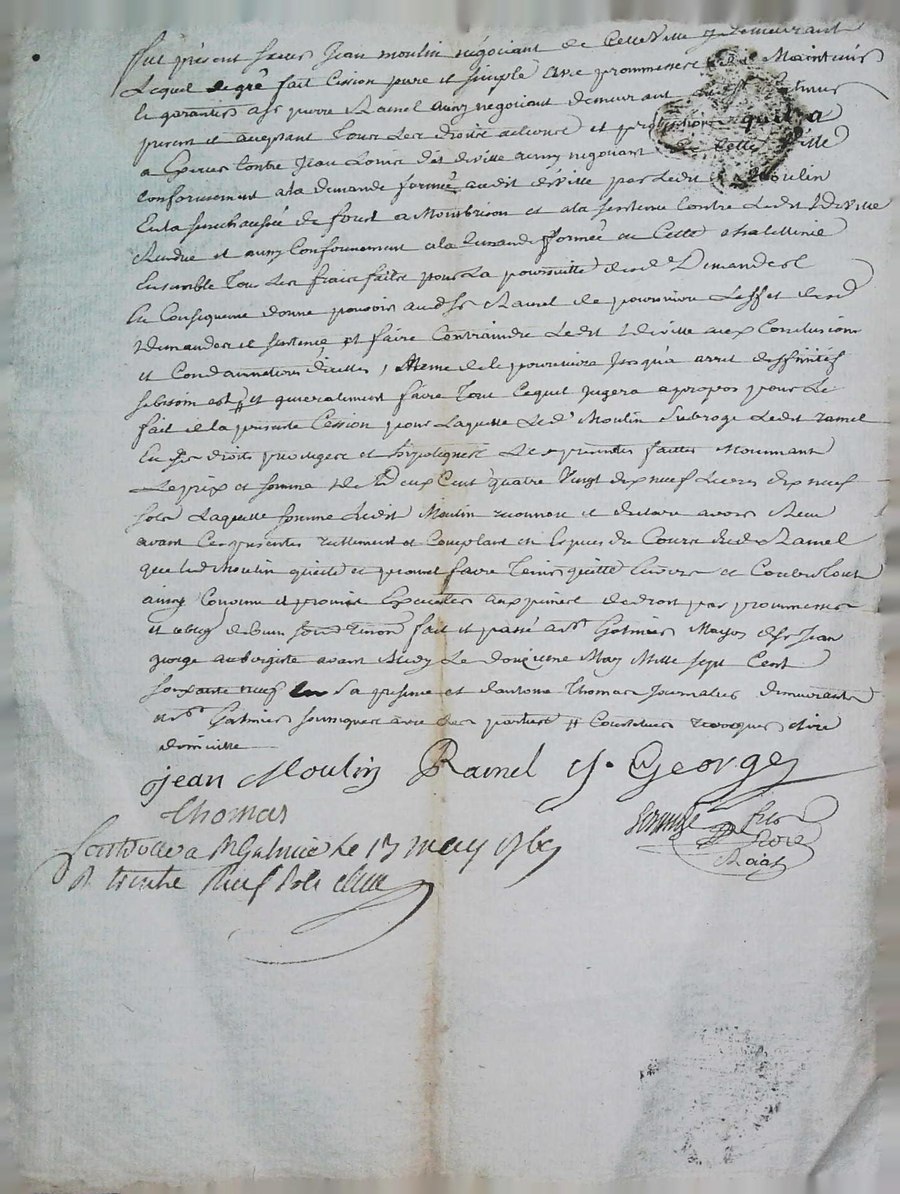 fut présent sieur Jean moulin négociant de Cette Ville y demeurant
Lequel de gré fait Cession pure et simple avec prommesse de Maintenir
et garantir a sr pierre Ramel aussy negotiant demeurant
present et aceptant Tous les droits actions et qu'il a
a Exercer Contre Jean Louis deville aussy negotiant de Cette Ville
Conformement a la demande formée audit deville par Ledit sr Moulin
En la senechaussée de forest a Montbrison et a la sentence Contre Ledit sr deVille
Rendue et aussy Conformement a la demande formée en Cette chatellenie
Ensemble Tous les fraix faits pour La poursuitte desd. Demandes
En Consequence donne pouvoir aud. sr Ramel de poursuivre L'effet desd.
demandes et sentence et faire Contraindre Ledit sr deville aux Conclusions
et Condamnations d'icelles, Meme de le poursuivre Jusqu'a arret deffinitif
sy besoin est et generalement faire Tout Cequil Jugera apropos pour Le
fait de la presente Cession pour Laquelle Led. Moulin Subroge Ledit ramel
En ses droits privileges et hipoteques Les presentes faittes Moyennant
Le prix et somme de Deux Cent quatre Vingt dix neuf Livres dix neuf
sols Laquelle somme Ledit Moulin reconnoit et declare avoir Receu
avant Ces presentes reellement et Comptant en Especes du Cours dud. sr Ramel
que led. Moulin quitte et promet faire Tenir quitte Envers et Contre Tout
ainsy Convenu et promis Executer aux peines de droit par prommesse
et oblig. de biens soub. renon. fait et passé a St Galmier Maison de sr Jean
george aubergiste avant Midy Le douzieme May Mille sept Cent
soixante neuf En Sa presence et d'antoine Thomas Journalier demeurants
a St Galmier soussignés avec les parties
domicille
jean Moulin Ramel J. George
Thomas
Controllé a St Galmier Le 13 may 1769
R trente Neuf sols